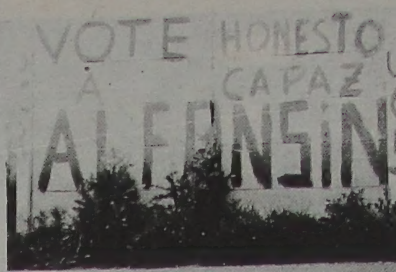 VOTE HONESTO
A CAPAZ
ALFONSiN